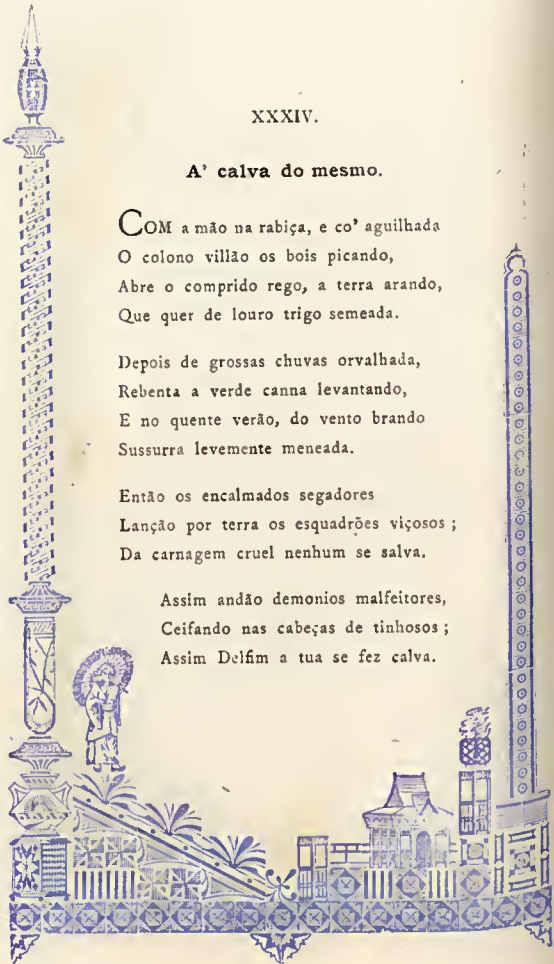 XXXIV.
A' calva do mesmo.
COM a mão na rabiça, e co' aguilhada
O colono villão os bois picando,
Abre o comprido rego, a terra arando,
Que quer de louro trigo semeada.
Depois de grossas chuvas orvalhada,
Rebenta a verde canna levantando,
E no quente verão, do vento brando
Sussurra levemente meneada.
Então os encalmados segadores
Lanção por terra os esquadrões viçosos ;
Da carnagem cruel nenhum se salva.
Assim andão demonios malfeitores,
Ceifando nas cabeças de tinhosos ;
Assim Delfim a tua se fez calva.